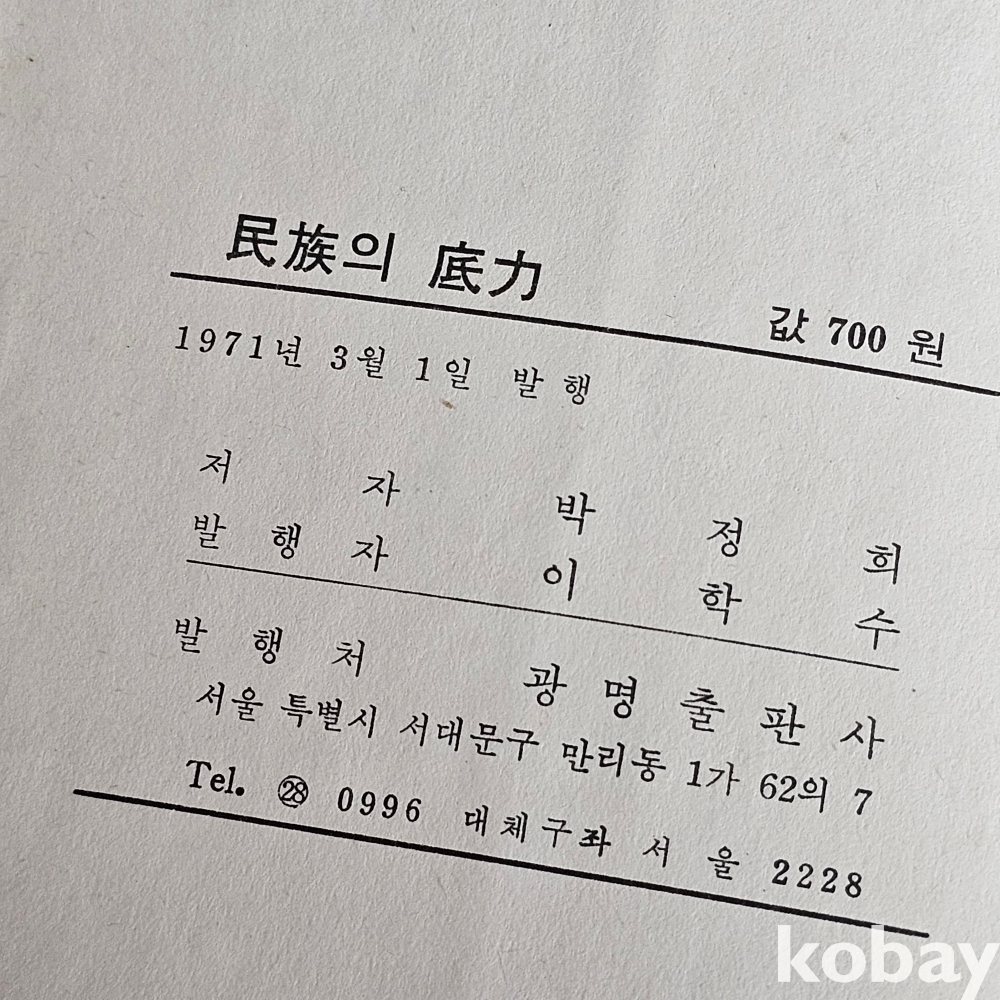 民族의 底力
값 700 원
1971년 3월 1일 발행
저 자 박 정 희
발 행 자 이 학 수
발 행 처 광 명 출 판 사
서울 특별시 서대문구 만리동 1가 62의 7
Tel. ㉘ 0996 대체구좌 서 울 2228
kobay